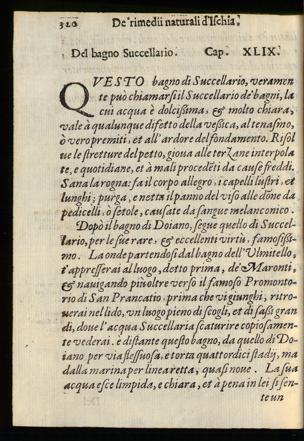 320 De' rimedii naturali d'Ischia,
Del bagno Succellario. Cap. XLIX.
QVESTO bagno di Succellario, veramen
te può chiamarsi il Succellario de' bagni, la
cui acqua è dolcissima, & molto chiara,
vale à qualunque difetto della vessica, al tenasmo,
ò vero premiti, et all' ardore del fondamento. Risol
ue le stretture del petto, gioua alle terzane interpola
te, e quotidiane, et à mali procedẽti da cause freddi.
Sana la rogna: fa il corpo allegro, i capelli lustri, et
lunghi; purga, e netta il panno del viso alle dõne da
pedicelli, ò setole, causate da sangue melanconico.
Dopò il bagno di Doiano, segue quello di Succel-
lario, per le sue rare, & eccellenti virtù, famosissi-
mo. La onde partendosi dal bagno dell' Vlmitello,
t'appresserai al luogo, detto prima, de' Maronti,
& nauigando più oltre verso il famoso Promonto-
rio di San Prancatio, prima che vi giunghi, ritro-
uerai nel lido, vn luogo pieno di scogli, et di sassi gran
di, doue l'acqua Succellaria scaturire copiosamen-
te vederai. è distante questo bagno, da quello di Do-
iano per via flessuosa, et torta quattordici stadij, ma
dalla marina per linea retta, quasi noue. La sua
acqua esce limpida, e chiara, et à pena in lei si sen-
te un